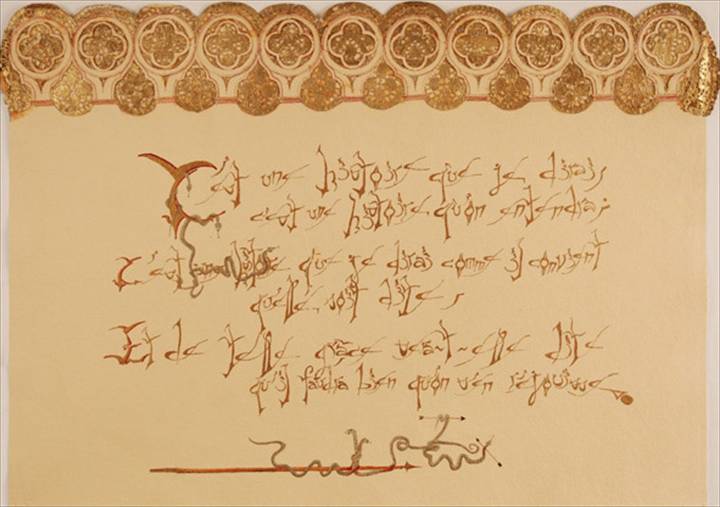 C'est une histoire que je dirai,
c'est une histoire qu'on entendra;
C'est une histoire que je dirai comme il convient
qu'elle soit dite,
Et de telle grâce sera-t-elle dite
qu'il faudra bien qu'on s'en réjouisse